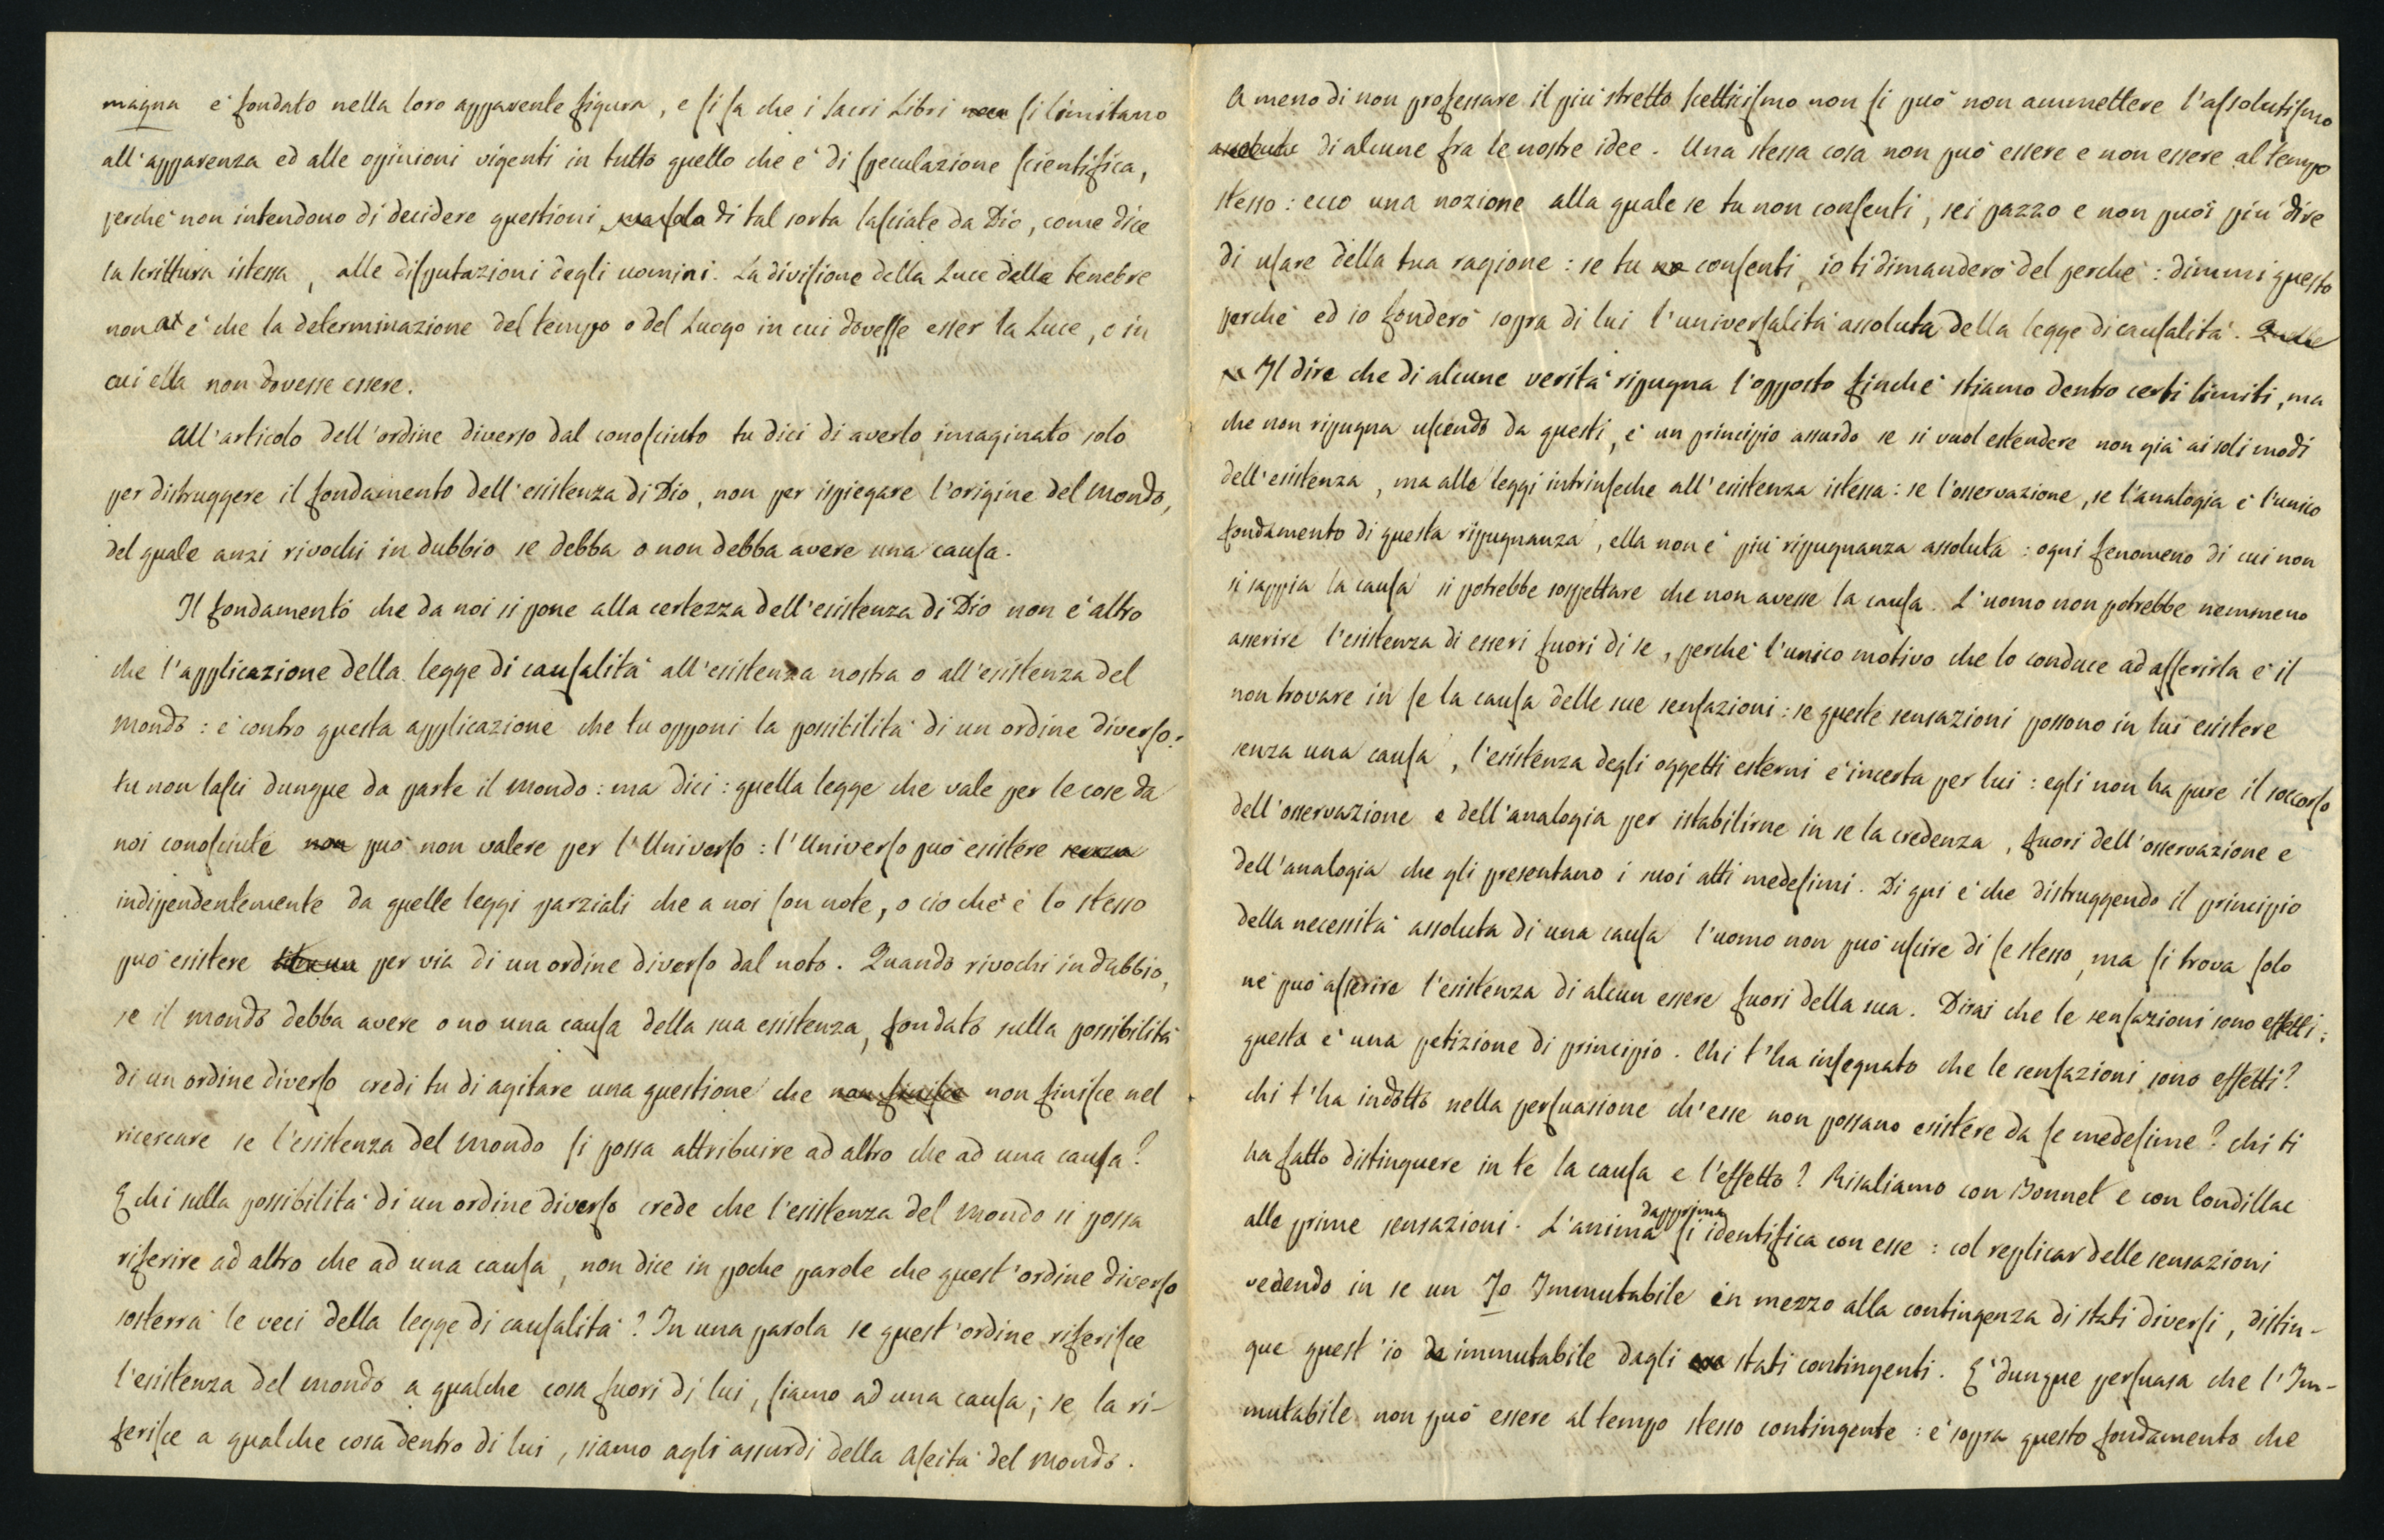 magna e' fondato nella loro apparente figura, e si sa che i Sacri Libri si limitano
all'apparenza ed alle opinioni vigenti in tutto quello che e' di speculazione scientifica,
perche' non intendono di decidere questioni di tal sorta lasciate da Dio, come dice
la Scrittura istessa, alle disputazioni degli uomini. La divisione della Luce dalle tenebre
non e' che la determinazione del tempo o del Luogo in cui dovesse esser la Luce, e in
cui ella non dovesse essere.
All'articolo dell'ordine diverso dal conosciuto tu dici di averlo imaginato solo
per distruggere il fondamento dell'esistenza di Dio, non per ispiegare l'origine del Mondo,
del quale anzi rivochi in dubbio se debba o non debba avere una causa.
Il fondamento che da noi si pone alla certezza dell'esistenza di Dio non e' altro
che l'applicazione della legge di causalita' all'esistenza nostra o all'esistenza del
Mondo: e' contro questa applicazione che tu opponi la possibilita' di un ordine diverso:
tu non lasci dunque da parte il Mondo: ma dici: quella legge che vale per le cose da
noi conosciute non puo' non valere per l'Universo: l'Universo puo' esistere senza
indipendentemente da quelle leggi parziali che a noi son note, o cio che e' lo stesso
puo' esistere per via di un ordine diverso dal noto. Quando rivochi in dubbio,
se il Mondo debba avere o no una causa della sua esistenza, fondato sulla possibilita'
di un ordine diverso credi tu di agitare una questione che non finisce non finisce nel
ricercare se l'esistenza del Mondo si possa attribuire ad altro che ad una causa?
E chi sulla possibilita' di un ordine diverso crede che l'esistenza del Mondo si possa
riferire ad altro che ad una causa, non dice in poche parole che quest'ordine diverso
sosterra' le veci della legge di causalita'? In una parola se quest'ordine riferisce
l'esistenza del mondo a qualche cosa fuori di lui, siamo ad una causa; se la ri-
ferisce a qualche cosa dentro di lui, siamo agli assurdi della Aseita' del Mondo.
A meno di non professare il piu' stretto scetticismo non si puo' non ammettere l'assolutismo
di alcune fra le nostre idee. Una stessa cosa non puo' essere e non essere al tempo
stesso: ecco una nozione alla quale se tu non consenti, sei pazzo e non puoi piu' dire
di usare della tua ragione: se tu consenti, io ti dimandero' del perche': dimmi questo
perche' ed io fondero' sopra di lui l'universalita' assoluta della legge di causalita'.
Il dire che di alcune verita' ripugna l'opposto finche' stiamo dentro certi limiti, ma
che non ripugna uscendo da questi, e' un principio assurdo se si vuol estendere non gia' ai soli modi
dell'esistenza, ma alle leggi intrinseche all'esistenza istessa: se l'osservazione, se l'analogia e' l'unico
fondamento di questa ripugnanza, ella non e' piu' ripugnanza assoluta: ogni fenomeno di cui non
si sappia la causa si potrebbe sospettare che non avesse la causa. L'uomo non potrebbe nemmeno
asserire l'esistenza di esseri fuori di se, perche' l'unico motivo che lo conduce ad asserirla e' il
non trovare in se la causa delle sue sensazioni: se queste sensazioni possono in lui esistere
senza una causa, l'esistenza degli oggetti esterni e' incerta per lui: egli non ha pure il soccorso
dell'osservazione e dell'analogia per istabilirne in se la credenza, fuori dell'osservazione e
dell'analogia che gli presentano i suoi atti medesimi. Di qui e' che distruggendo il principio
della necessita' assoluta di una causa l'uomo non puo' uscire di se stesso, ma si trova solo
ne' puo' asserire l'esistenza di alcun essere fuori della sua. Dirai che le sensazioni sono effetti:
questa e' una petizione di principio. Chi t'ha insegnato che le sensazioni sono effetti?
chi t'ha indotto nella persuasione ch'esse non possano esistere da se medesime? chi ti
ha fatto distinguere in te la causa e l'effetto? Risaliamo con Bonnet e con Condillac
alle prime sensazioni. L'anima dapprima si identifica con esse: col replicar delle sensazioni
vedendo in se un Io Immutabile in mezzo alla contingenza di stati diversi, distin-
gue quest'io immutabile dagli stati contingenti. E' dunque persuasa che l'Im-
mutabile non puo' essere al tempo stesso contingente: e' sopra questo fondamento che